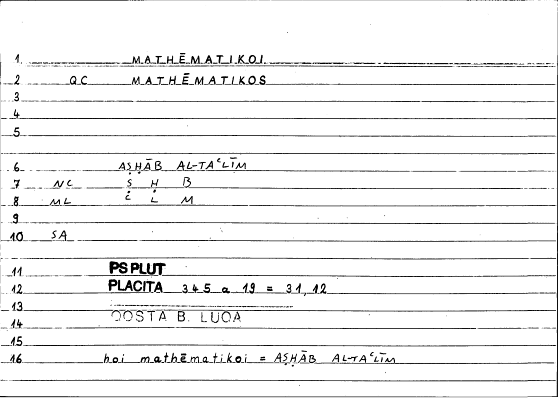 1 MATHĒMATIKOI
2 QC MATHĒMATIKOS
3
4
5
6 AṢḤĀB AL-TAʿLĪM
7 NC Ṣ Ḥ B
8 ML ʿ L M
9
10 SA
11 PS PLUT
12 PLACITA 345 a 19 = 31,12
13
14 QOSTA B. LUQA
15
16 hoi mathēmatikoi = AṢḤĀB AL-TAʿLĪM